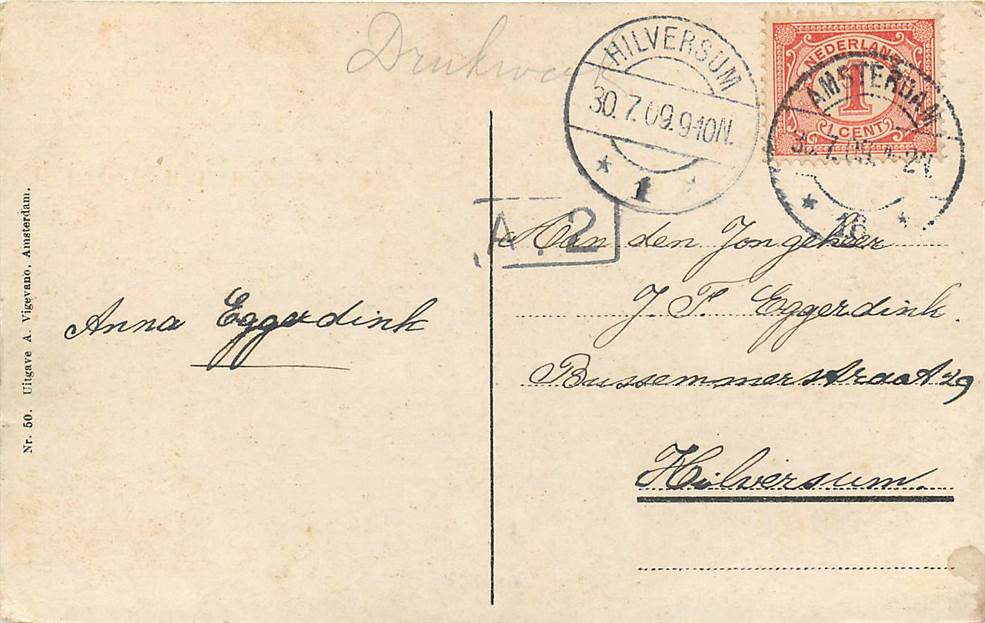 Drukwerk
HILVERSUM
30.7.09.9-10N.
1
NEDERLAND
1
1 CENT
AMSTERDAM
16
A. 2
Aan den Jongeheer
J F Eggerdink.
Bussemmerstraat 29
Hilversum.
Anna Eggerdink
Nr. 50. Uitgave A. Vigevano, Amsterdam.